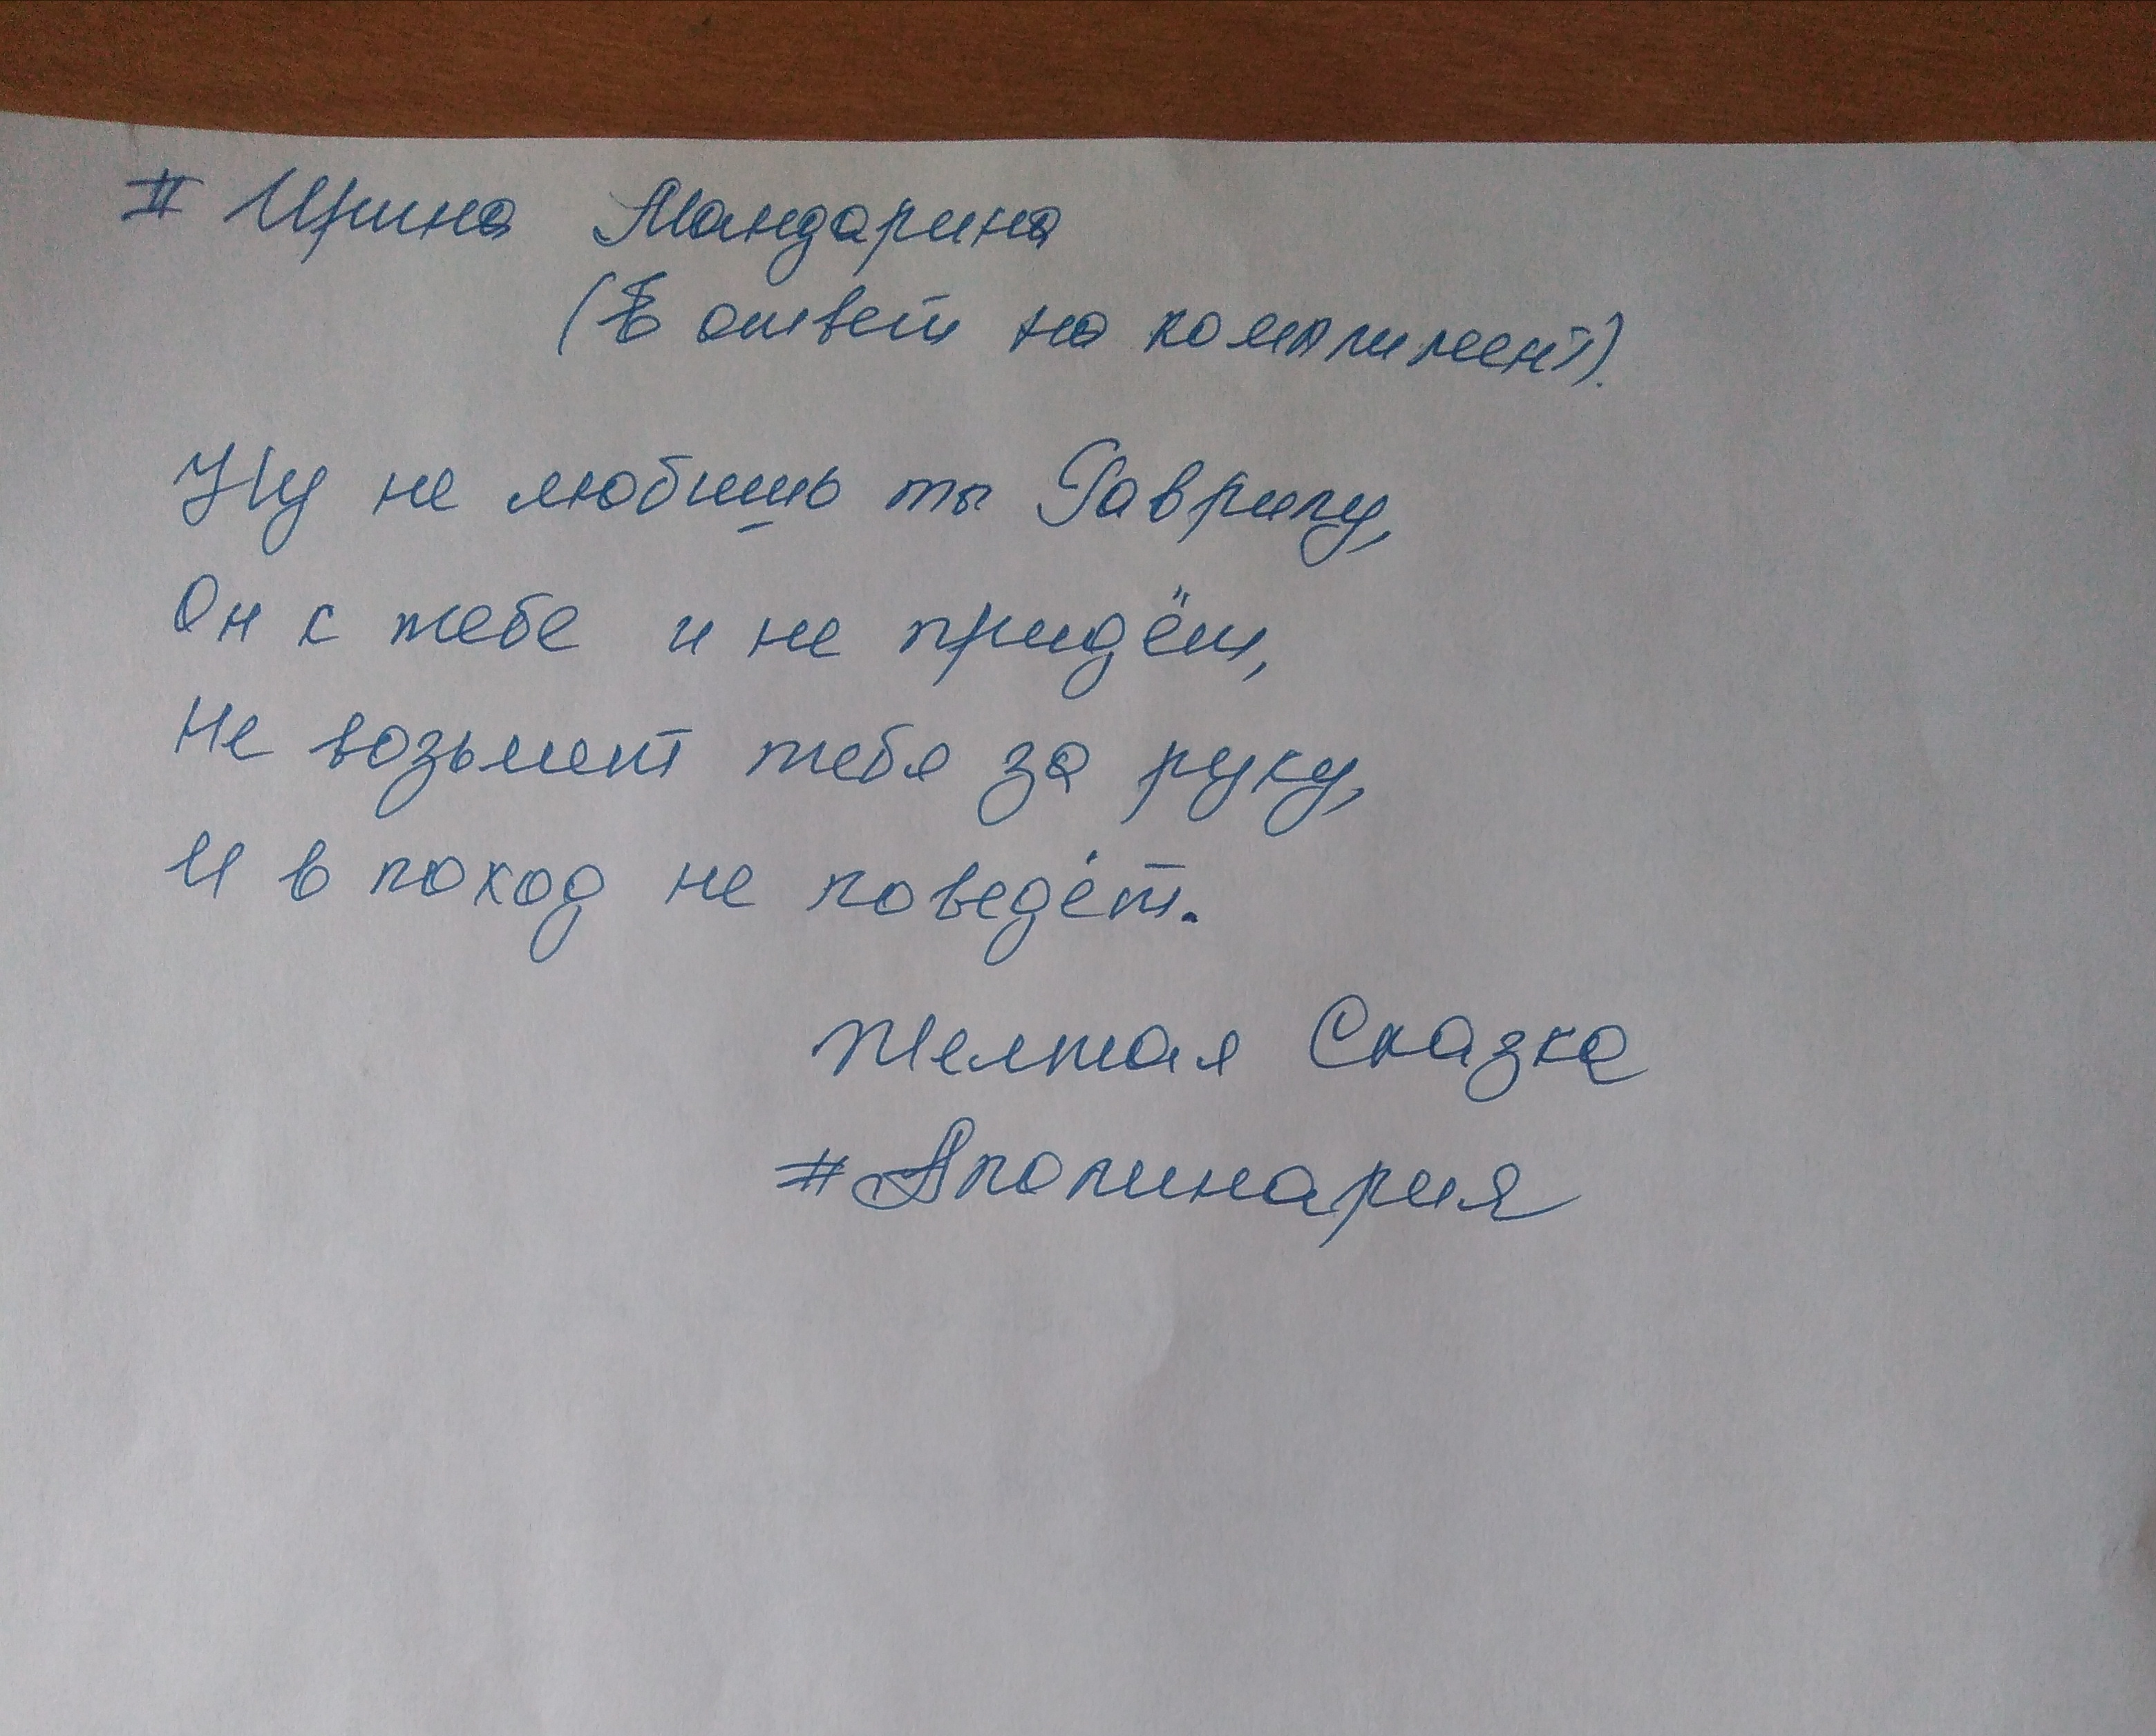 # Ирина Мандарина
(В ответ на комплимент).
Ну не любишь ты Гаврилу,
Он к тебе и не придёт,
Не возьмет тебя за руку,
И в поход не поведёт.
Желтая Сказка
#Аполинария